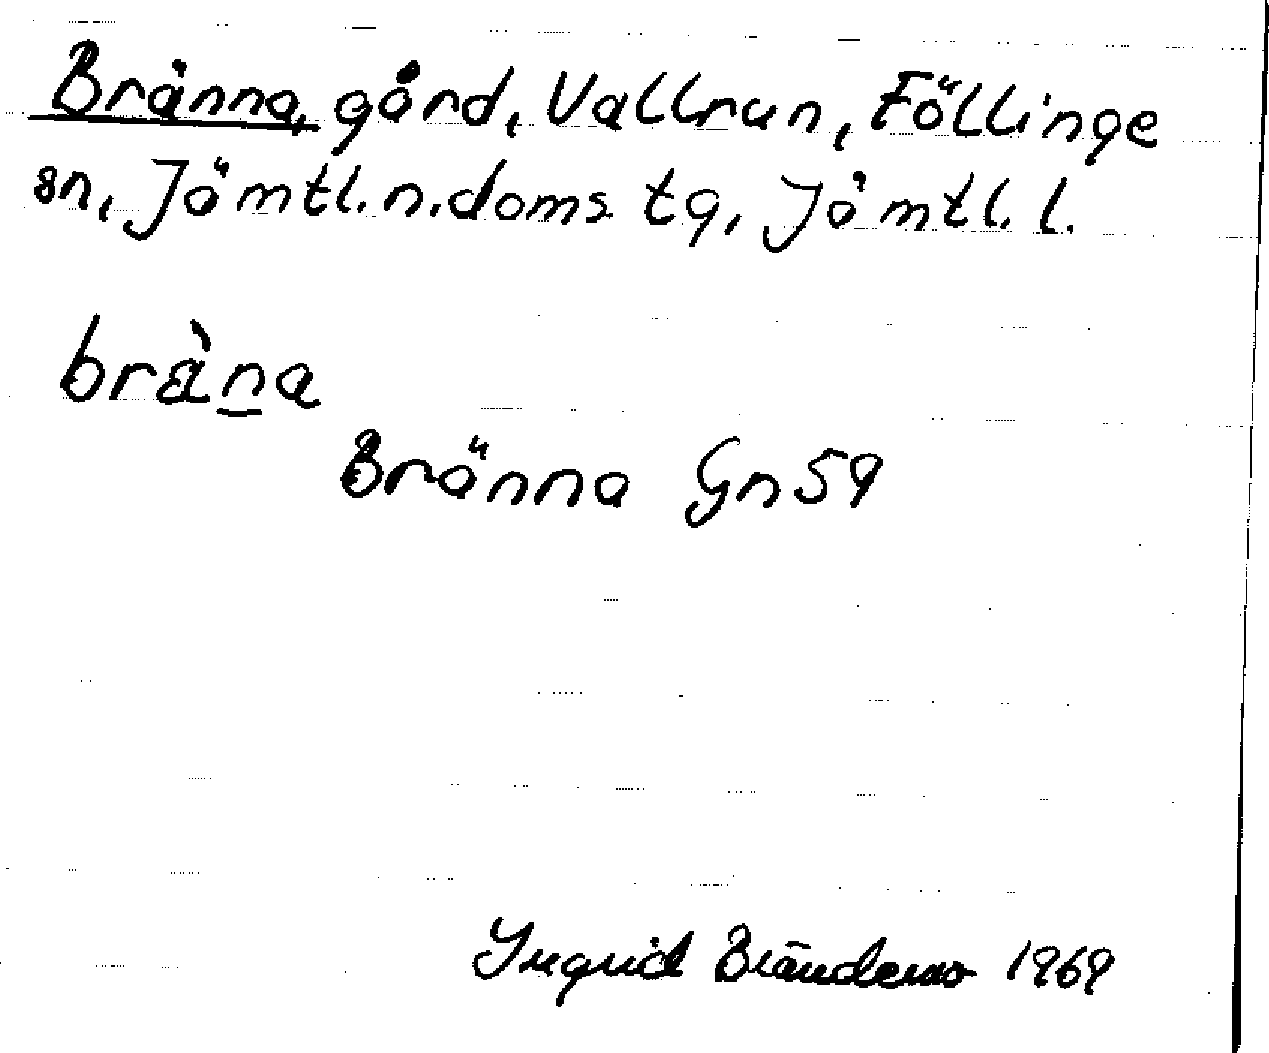 Bränna, gård, Vallrun, Föllinge
sn, Jämtl.n.doms tg, Jämtl. l.
bràn̲a
Bränna Gn59
Ingrid 1969